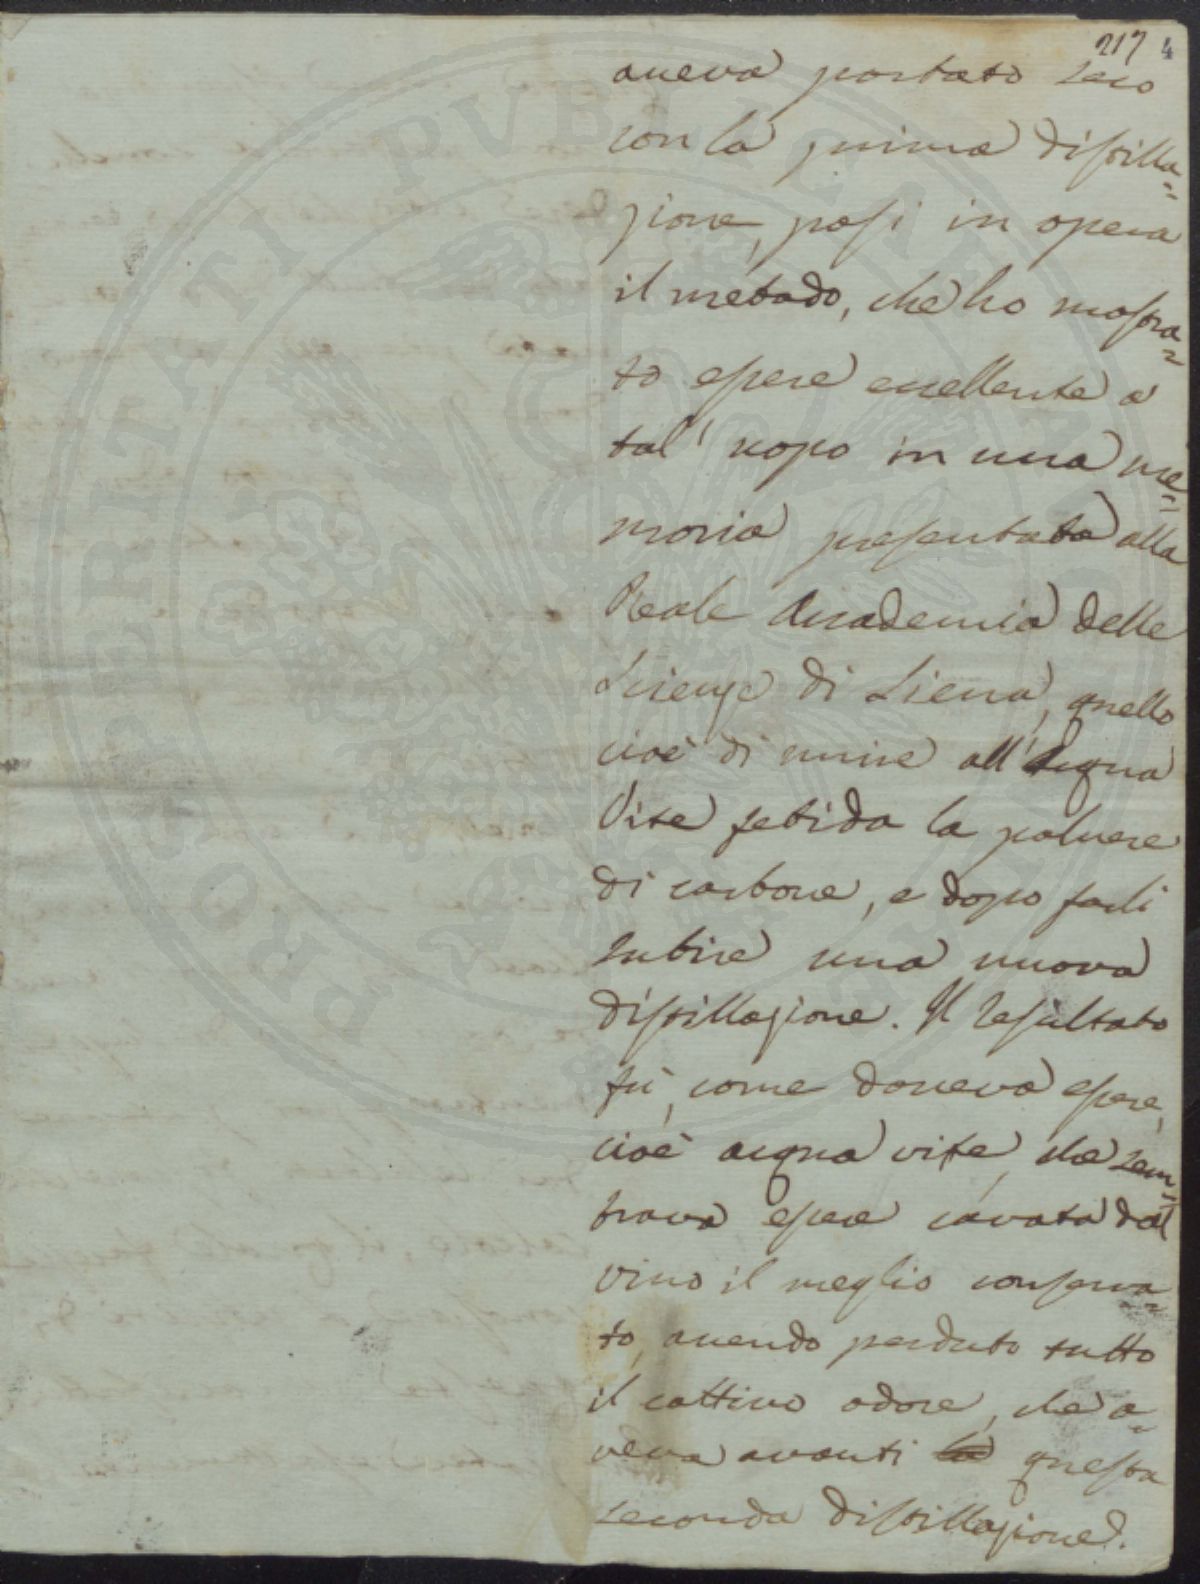 217 4
aueva portato seco
con la prima distilla=
zione, posi in opera
il metodo, che ho mostra=
to essere eccellente a
tal' uopo in una me=
moria presentata alla
Reale Accademia delle
Scienze di Siena, quello
cioè di unire all'Acqua
Vite fetida la polvere
di carbone, e dopo farli
subire una nuova
distillazione. Il resultato
fù, come doveva essere,
cioè acqua vite, che sem=
brava essere cavata dal
vino il meglio conserva=
to, avendo perduto tutto
il cattivo odore, che a=
veva avanti la questa
seconda distillazione.
PROSPERITATI PVBLICAE AVGENDAE